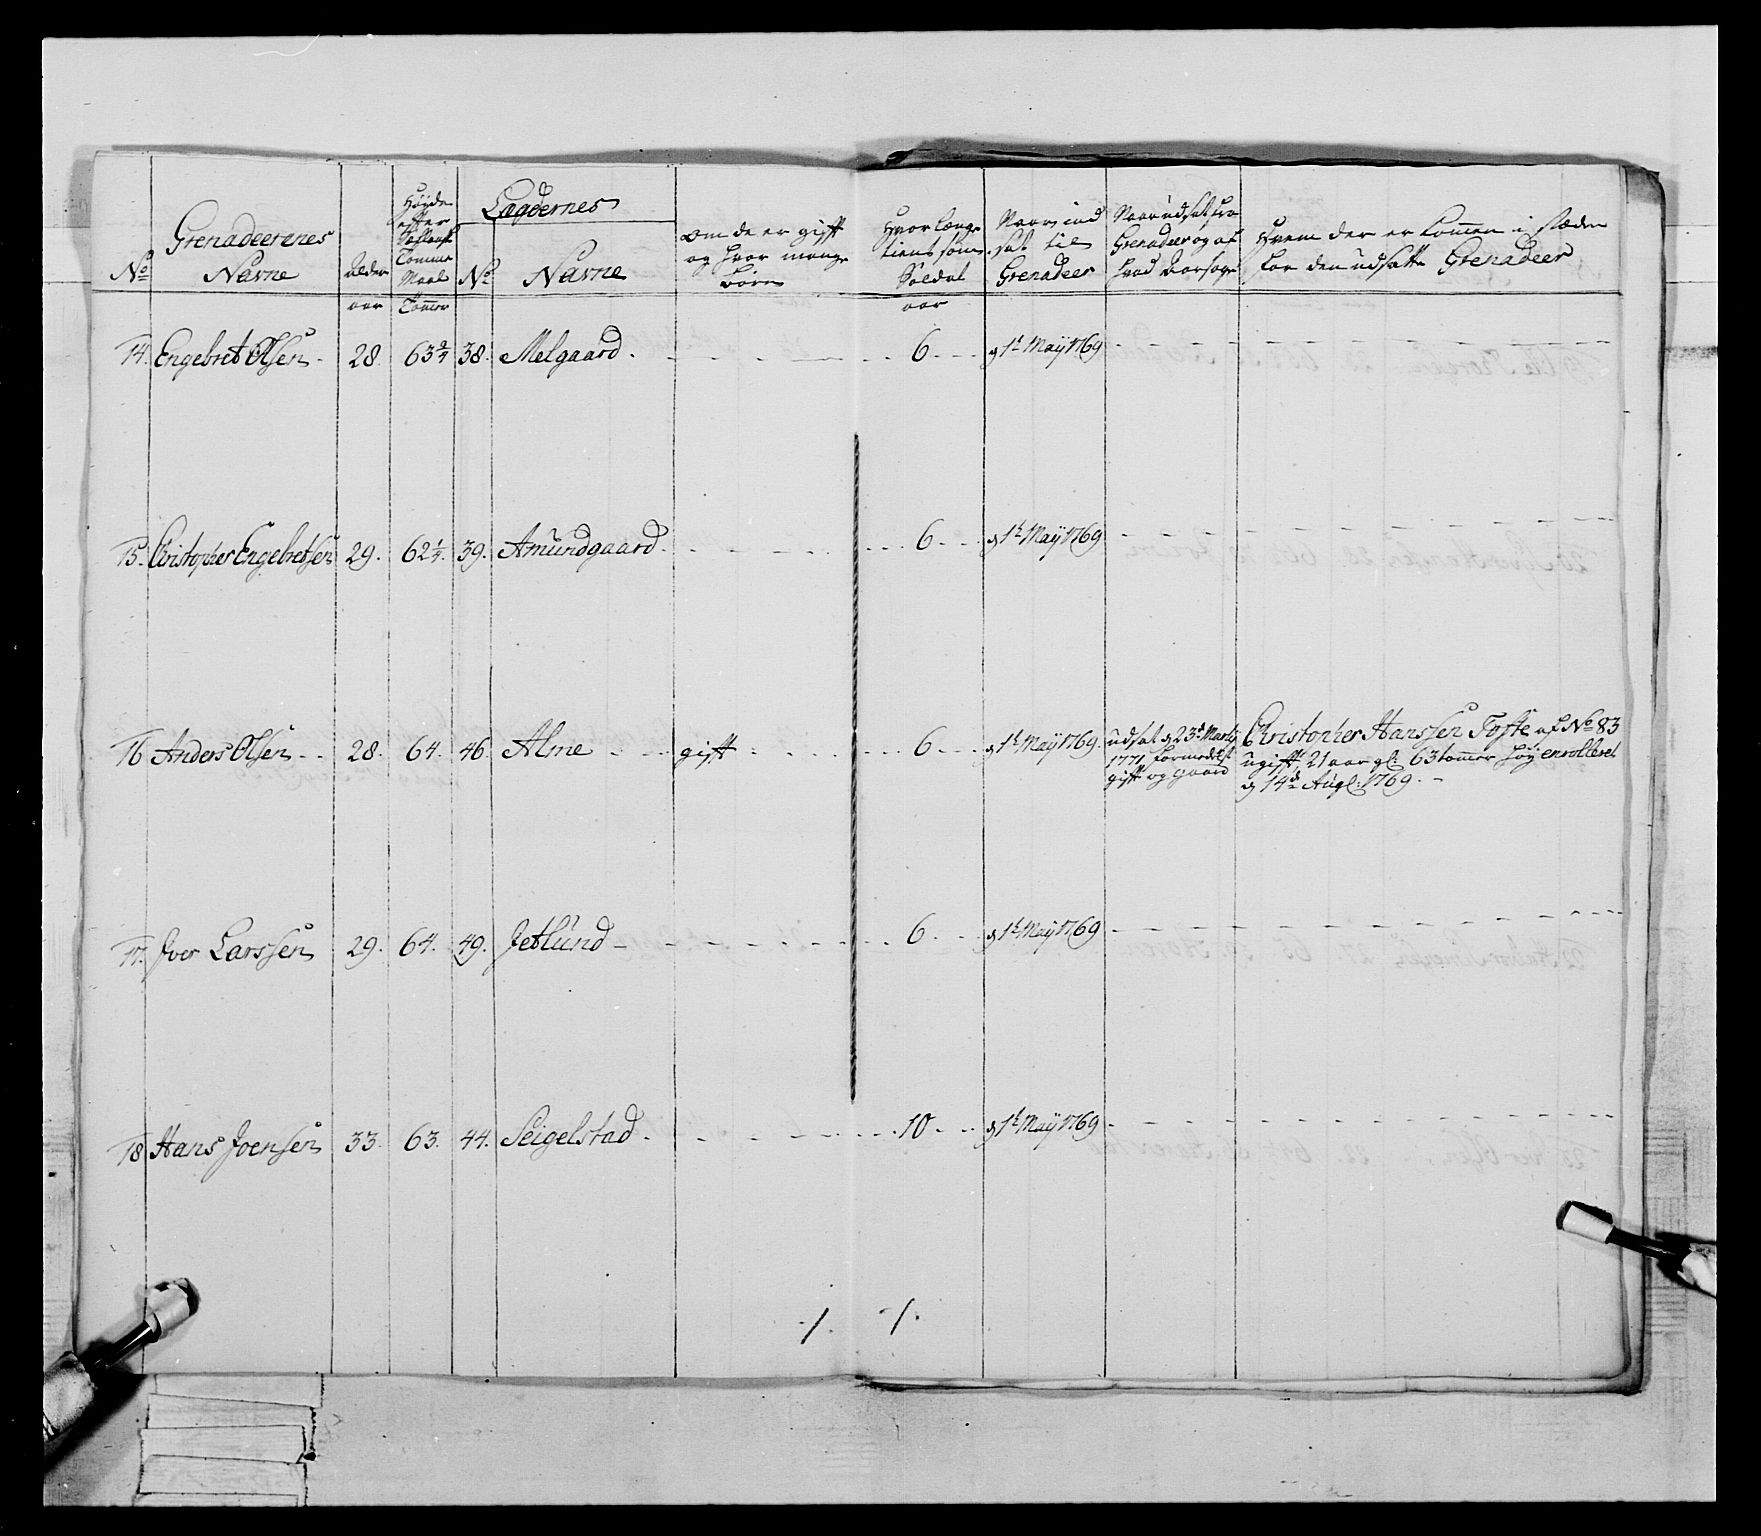 Grenadeerenes
Høyde
efter
Tomme
Maal
Lægdernes
om de er gift
og hvor mange
Børn
Hvor længe
tient som
Soldat
Naar ind
sat til
Grenadeer
Naar udsat fra
Grenadeer og af
hvad Aarsage
Hvem der er kommen i stæden
for den udsatte Grenadeer
No
Navne
Alder
No
Navne
aar
Tommer
aar
14. Engebret Olsen 28. 63 3/4 38. Melgaard. 6 d 1t May 1769
15. Christopher Engebretsen 29. 62 1/4 39. Amundgaard. 6 d 1t May 1769
16 Anders Olsen 28. 64. 46. Alme gift 6 d 1t May 1769. udsat d 23d Marty
1771 formedelst
gift og gaard
Christopher Hanssen Tofte af L No 83
ugift, 21 aar gl: 63 tommer høy enrolleret
d 14d Augl: 1769.
17. Iver Larssen 29. 64. 49. Jetlund 6 d 1t May 1769
18 Hans Joensen 33. 63. 44. Seigelstad. 10 d 1t May 1769
./. ./.